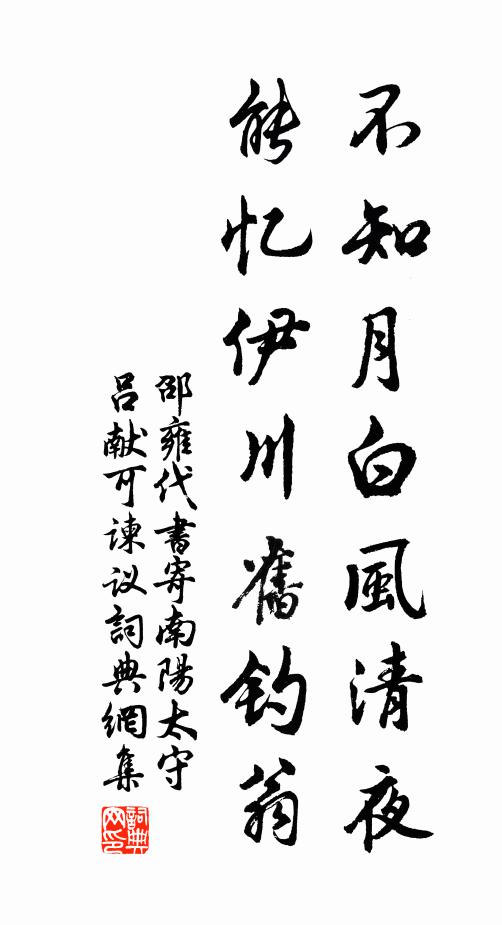 不知月白風清夜
能忆伊川舊钓翁
邵雍代書寄南陽太守
吕献可谏议詞典網集
詞典网印